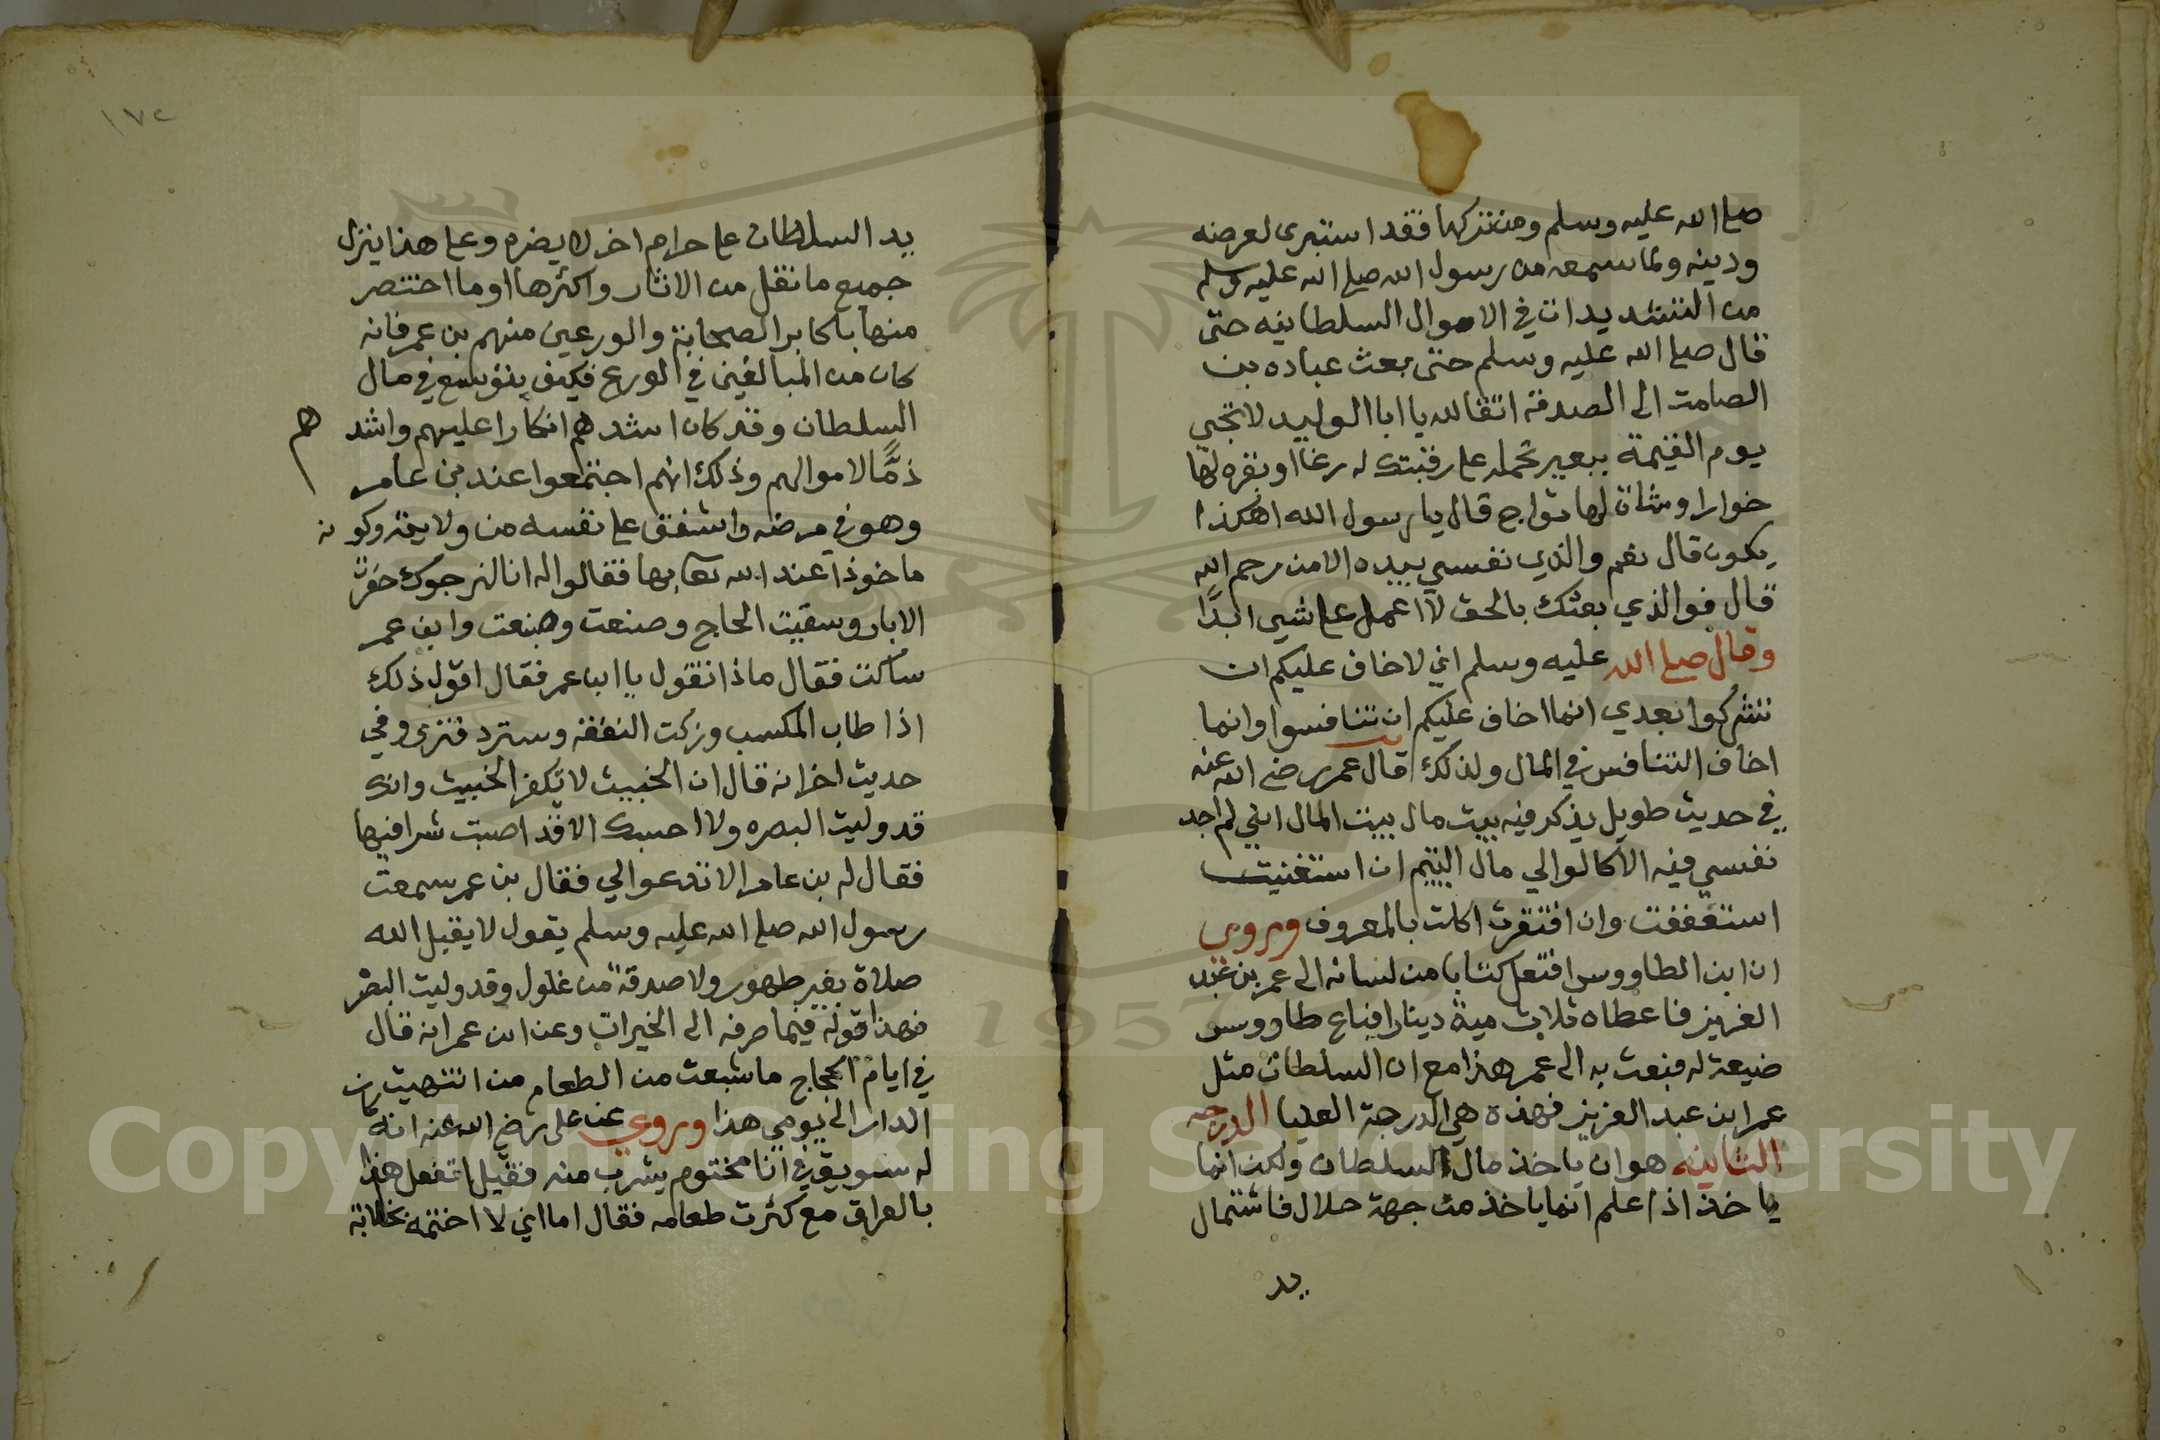 صلي الله عليه وسلم ومن تركها فقد استبرى لعرضه
ودينه ولما سمعه من رسول الله صلي الله عليه وسلم
من التشديدات في الاموال السلطانيه حتى
قال صلي الله عليه وسلم حتى بعث عباده بن
الصامت الى الصدقه اتقالله يا ابا الوليد لا تجي
يوم القيمة ببعير تحمله على رقبتك له رغا او بقره لها
خوار او شاة لها تواج قال يا رسول الله اهكذا
يكون قال نعم والذي نفسي بيده الا من رحم الله
قال فوالذي بعثك بالحق لا اعمل على شي ابدًا
وقال صلي الله عليه وسلم اني لاخاف عليكم ان
تشركوا بعدي انما اخاف عليكم ان تنافسوا وانما
اخاف التنافس في المال ولذلك قال عمر رضي الله عنه
في حديث طويل يذكر فيه بيت مال بيت المال انني لم اجد
نفسي فيه الا كالوالي مال اليتيم ان استغنيت
استعففت وان افتقرت اكلت بالمعروف وروي
ان ابن الطاووس افتعل كتابا من لسانه الى عمر بن عبد
العزيز فاعطاه ثلاث مية دينار افباع طاووس
ضيعة له فبعث به الى عمر هذا مع ان السلطان مثل
عمر ابن عبد العزيز فهذه هي الدرجة العليا الدرجه
الثانيه هو ان ياخذ مال السلطان ولكن انما
ياخذ اذا علم انما ياخذ من جهة حلال فاشتمال
يد
١٧٢
يد السلطان على حرام اخر لا يضره وعلى هذا ينزل
جميع ما نقل من الاثار واكثرها او ما اختصر
منها باكابر الصحابة والورعين منهم بن عمر فانه
كان من المبالغين في الورع فكيف يتوسع في مال
السلطان وقد كان اشدهم انكارا عليهم واشد هم
ذمًّا لاموالهم وذلك انهم اجتمعوا عند بن عامر
وهو في مرضه واشفق على نفسه من ولايته وكو نه
ماخوذا عند الله تعا بها فقالوا له انا لنرجو لك حفرت
الابار وسقيت الحاج وصنعت وصنعت وابن عمر
ساكت فقال ماذا تقول يا ابا عمر فقال اقول ذلك
اذا طاب المكسب وزكت النفقه وسترد فترى وفي
حديث اخر انه قال ان الخبيث لا تكفر الخبيث وانك
قد وليت البصره ولا احسبك الا قد اصبت شرا فيها
فقال له بن عامر الا تدعو الي فقال بن عمر سمعت
رسول الله صلي الله عليه وسلم يقول لا يقبل الله
صلاة بغير طهور ولا صدقة من غلول وقد وليت البصر
فهذا قوله فيما صرفه الى الخيرات وعن ابن عمر انه قال
في ايام الحجاج ما شبعت من الطعام من انتهيت ان
الدار الى يومي هذا وروي عن على رضي الله عنه انه كان
له سويق في انا مختوم يشرب منه فقيل اتفعل هذا
بالعراق مع كثرت طعامه فقال اما اني لا اختمه بخلا به